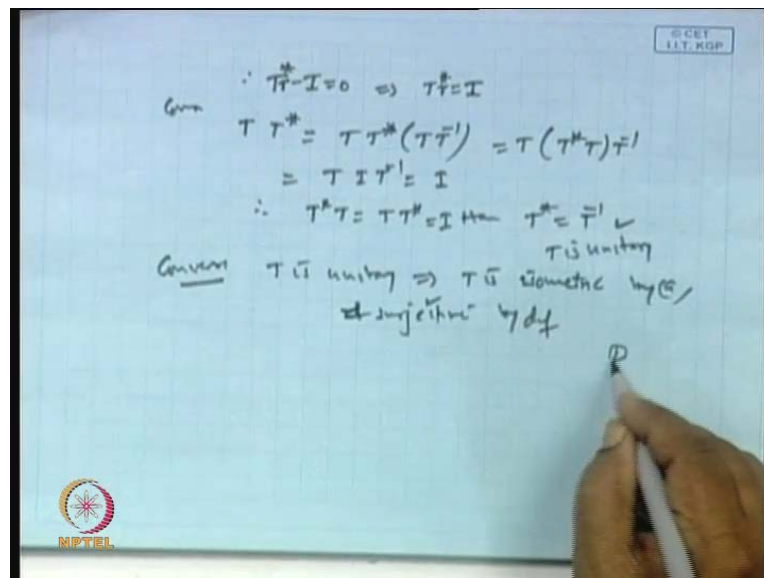 © CET
I.I.T. KGP
∴ T*T - I = 0 ⇒ T*T = I
T T* = T T* (T T⁻¹) = T (T* T) T⁻¹
= T I T⁻¹ = I
∴ T* T = T T* = I Hence T* = T⁻¹ ✓
T is unitary
Convers T is unitary ⇒ T is isometric by (a),
surjective by def
NPTEL